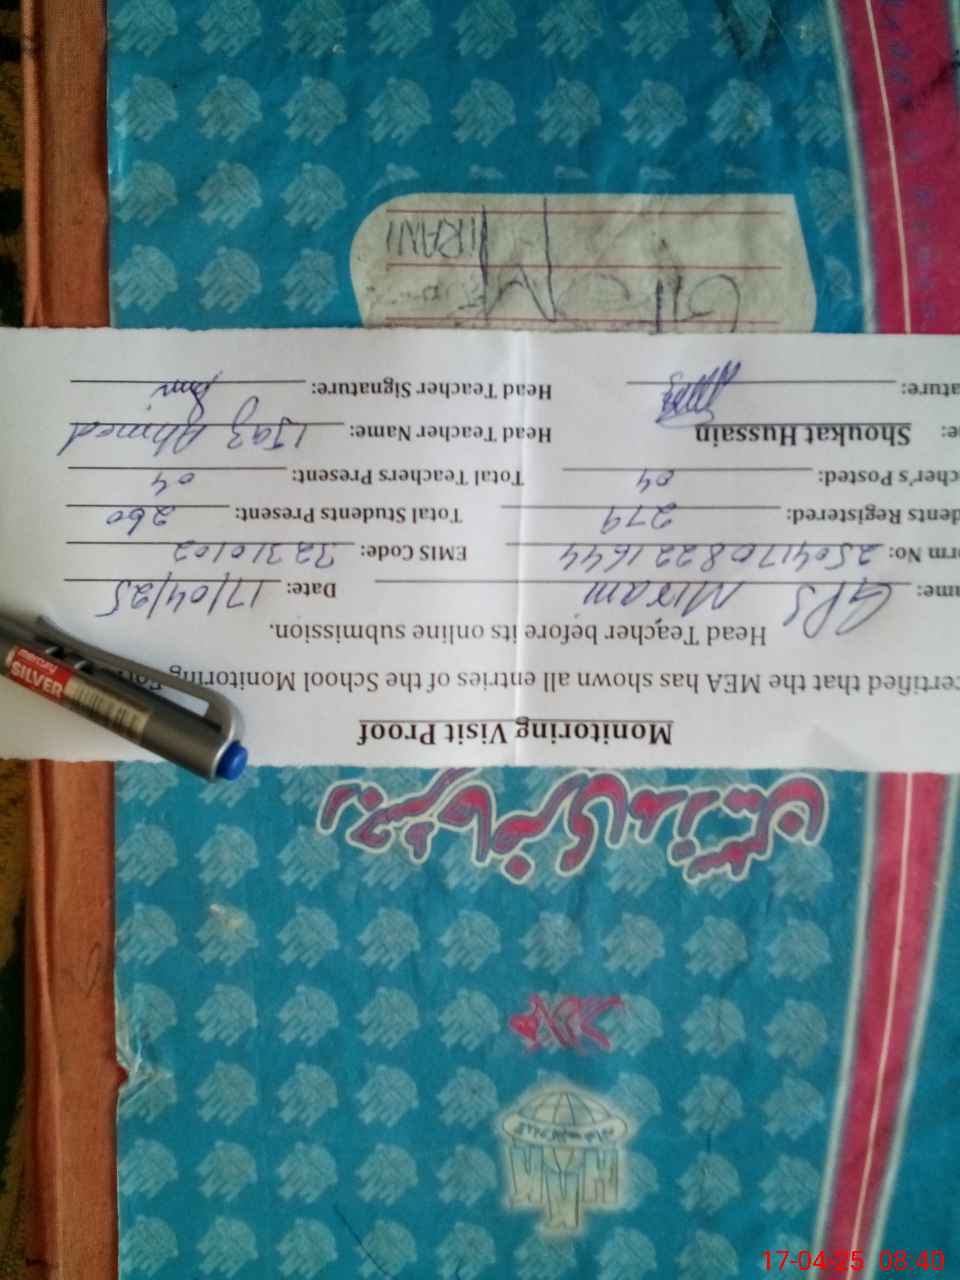 Monitoring Visit Proof
certified that the MEA has shown all entries of the School Monitoring
Head Teacher before its online submission.
ame: GPS Miram Date: 17/04/25
orm No: 25041708221644 EMIS Code: 32310102
dents Registered: 279 Total Students Present: 260
cher's Posted: 04 Total Teachers Present: 04
e: Shoukat Hussain Head Teacher Name: Ijaz Ahmed
ature: Head Teacher Signature:
IRANI
رجسٹر حاضری مدرسین
mercury
SILVER
17-04-25 08:40